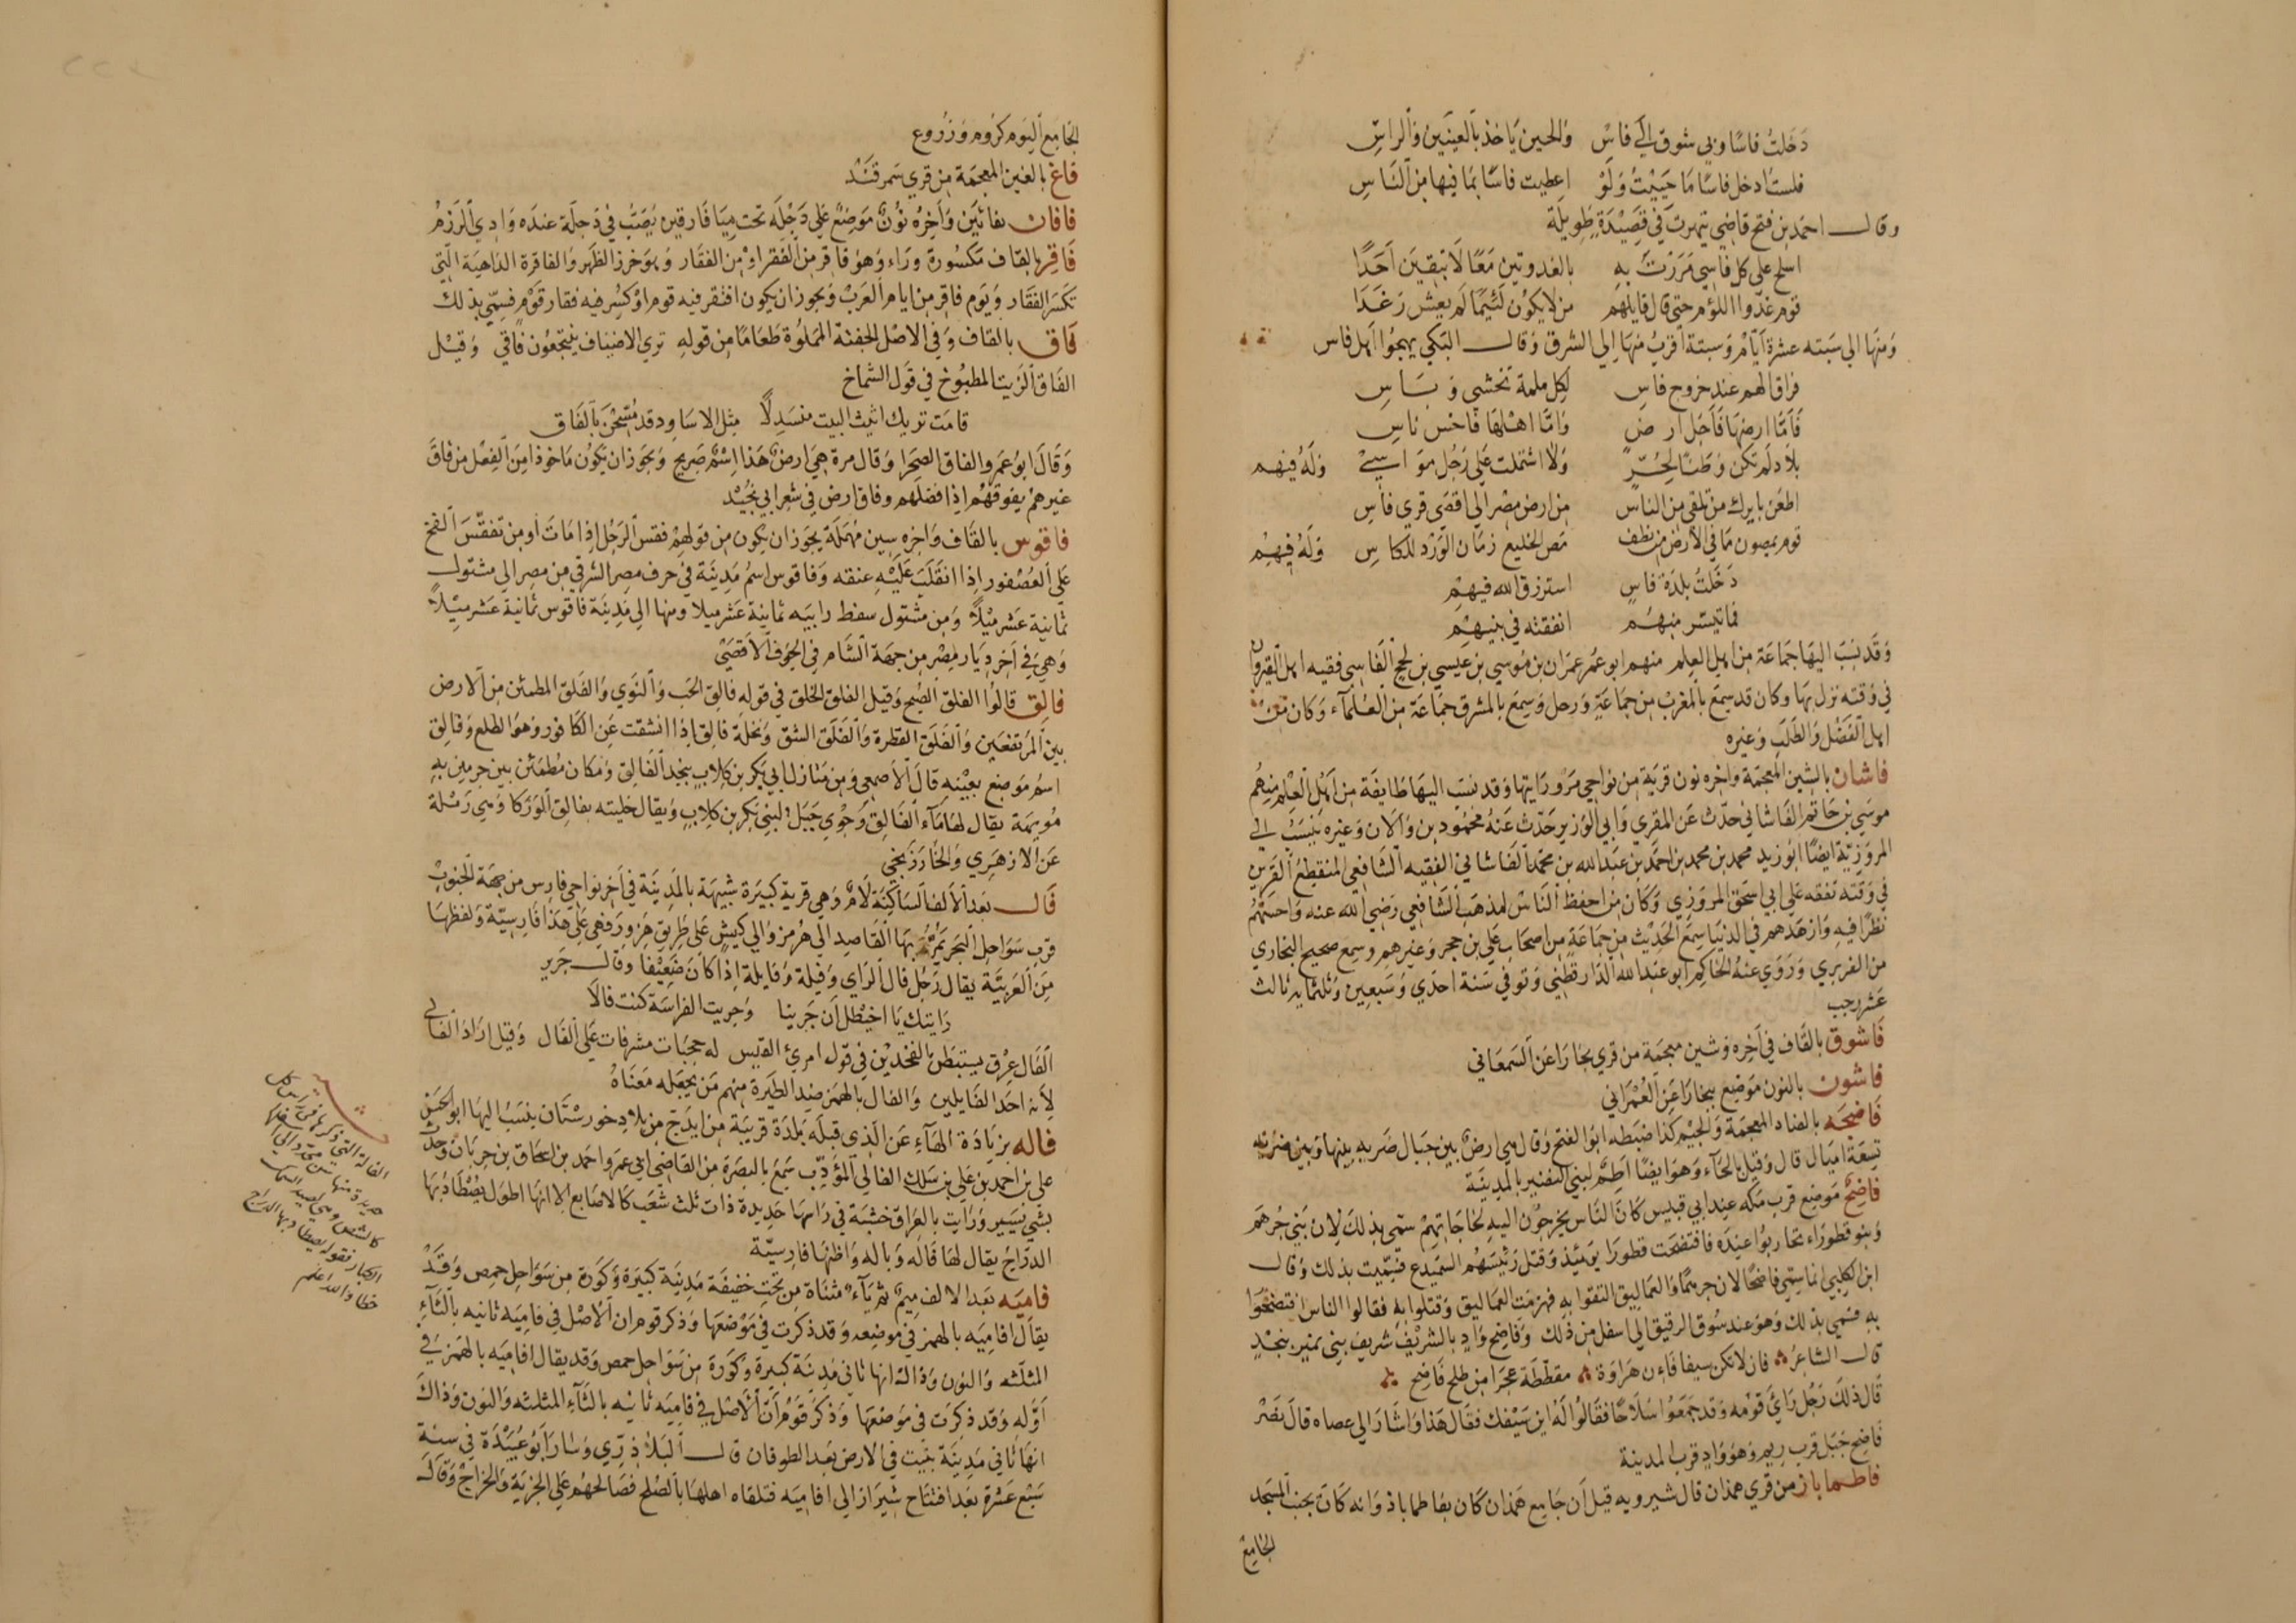 دخلت فاسا وبي شوق الي فاس والحين ياخذ بالعينين والراس
فلست ادخل فاسا ما حييت ولو اعطيت فاسا بما فيها من الناس
وقال احمد بن فتح قاضي تيهرت في قصيدة طويلة
اسلح علي كل فاسي مررت به بالعدوتين معا لا تبقين احدا
قوم غذوا اللؤم حتي قال قايلهم من لا يكون لئيما لم يعش رغدا
ومنها الي سبته عشرة ايام وسبتة اقرب منها الي الشرق وقال البكي يهجوا اهل فاس
فراق الهم عند خروج فاس لكل ملمة تخشي وباس
فاما ارضها فاجل ارض واما اهلها فاخس ناس
بلاد لم تكن وطنا لحر ولا اشتملت علي رجل مواسي وله فيهم
اطعن بايرك من تلقي من الناس من ارض مصر الي اقصي قري فاس
قوم يمصون ما في الارض من نطف مص الخليع زمان الورد للكاس وله فيهم
دخلت بلدة فاس استرزق الله فيهم
فما تيسر منهم انفقته في بنيهم
وقد نسب اليها جماعة من اهل العلم منهم ابو عمر عمران بن موسي بن عيسي بن نجح الفاسي فقيه اهل القيروان
في وقته نزل بها وكان قد سمع بالمغرب من جماعة ورحل وسمع بالمشرق جماعة من العلماء وكان من
اهل الفضل والطلب وغيره
فاشان بالشين المعجمة واخره نون قرية من نواحي مرو رايتها وقد نسب اليها طايفة من اهل العلم منهم
موسي بن حاتم الفاشاني حدث عن المقري وابي الوزير حدث عنه محمود بن والان وغيره ينسب الي
المروزية ايضا ابو زيد محمد بن محمد بن احمد بن عبد الله بن محمد الفاشاني الفقيه الشافعي المنقطع القرين
في وقته تفقه علي ابي اسحق المروزي وكان من احفظ الناس لمذهب الشافعي رضي الله عنه واحسنهم
نظرا فيه وازهدهم في الدنيا سمع الحديث من جماعة من اصحاب علي بن حجر وغيرهم وسمع صحيح البخاري
من الفربري وروي عنه الحاكم ابو عبد الله الدارقطني وتوفي سنة احدي وسبعين وثلثمايه ثالث
عشر رجب
فاشوق بالقاف في اخره وشين معجمة من قري بخارا عن السمعاني
فاشون بالنون موضع ببخارا عن العمراني
فاضجه بالضاد المعجمة والجيم كذا ضبطه ابو الفتح وقال هي ارض بين جبال ضريه بينها وبين ضرية
تسعة اميال قال وقيل بالحاء وهو ايضا اطم لبني النضير بالمدينة
فاضح موضع قرب مكه عند ابي قبيس كان الناس يخرجون اليه لحاجاتهم سمي بذلك لان بني جرهم
وبنو قطوراء تحاربوا عنده فافتضحت قطورا يومئذ وقتل رئيسهم السميدع فسميت بذلك وقال
ابن الكلبي انما سمي فاضحا لان جرهما والعماليق التقوا به فهزمت العماليق وقتلوا به فقالوا الناس افتضحوا
به فسمي بذلك وهو عند سوق الرقيق الي اسفل من ذلك وفاضح واد بالشريف شريف بني نمير بنجد
قال الشاعر فان لا تكن سيفا فان هراوة مقططة عجرا من طلح فاضح
قال ذلك رجل راي قومه وقد جمعوا سلاحا فقالوا له اين سيفك فقال هذا واشار الي عصاه قال نصر
فاضح جبل قرب ريم وهو واد قرب المدينة
فاطماباذ من قري همذان قال شيرويه قيل ان جامع همذان كان بفاطماباذ وانه كان بجنب المسجد
الجامع
الجامع اليوم كروم وزروع
فاغ بالغين المعجمة من قري سمرقند
فافان بفائين واخره نون موضع علي دجلة تحت ميافارقين يصب في دجلة عنده وادي الرزم
فاقر بالقاف مكسورة وراء وهو فاقر من الفقر او من الفقار وهو خرز الظهر والفاقرة الداهية التي
تكسر الفقار ويوم فاقر من ايام العرب ويجوز ان يكون افتقر فيه قوم او كسر فيه فقار قوم فسمي بذلك
فاق بالقاف وفي الاصل الجفنة المملوة طعاما من قوله تري الاضياف ينتجعون فاقي وقيل
الفاق الزيت المطبوخ في قول الشماخ
قامت تريك اثيث البيت منسدلا مثل الاساود قد مسحن بالفاق
وقال ابو عمرو الفاق الصحرا وقال مرة هي ارض هذا اسم صريح ويجوز ان يكون ماخوذا من الفعل من فاق
غيرهم يفوقهم اذا فضلهم وفاق ارض في شعر ابي نجيد
فاقوس بالقاف واخره سين مهملة يجوز ان يكون من قولهم فقس الرجل اذا مات او من تفقس الفخ
علي العصفور اذا انقلب عليه عنقه وفاقوس اسم مدينة في حرف مصر الشرقي من مصر الي مشتول
ثمانية عشر ميلا ومن مشتول سفط رابيه ثمانية عشر ميلا ومنها الي مدينة فاقوس ثمانية عشر ميلا
وهي في اخر ديار مصر من جهة الشام في الحوف الاقصي
فالق قالوا الفلق الصبح وقيل الفلق الخلق في قوله فالق الحب والنوي والفلق المطمئن من الارض
بين المرتفعين والفلق القطرة والفلق الشق ونخلة فالق اذا انشقت عن الكافور وهو الطلع وفالق
اسم موضع بعينه قال الاصمعي ومن منازل ابي بكر بن كلاب بنجد الفالق ومكان مطمئن بين حرمين به
مويهة يقال لها ماء الفالق وحوي جبل لبني بكر بن كلاب ويقال خليته بفالق الوركا وهي رملة
عن الازهري والخارزنجي
فال بعد الالف الساكنة لام وهي قرية كبيرة شبيهة بالمدينة في اخر نواحي فارس من جهة الجنوب
قرب سواحل البحر يمر بها القاصد الي هرمز والي كيش علي طريق هزو رفهي علي هذا فارسية ولفظها
من العربية يقال رجل فال الراي وفيلة وفايلة اذا كان ضعيفا وقال جرير
رايتك يا اخيطل ان جرينا وجربت الفراسة كنت فالا
الفال عرق يستبطن بالفخذين في قول امرئ القيس له حجبات مشرفات علي الفال وقيل اراد الفالي
لانه احد الفايلين والفال بالهمز ضد الطيرة منهم من يجعله معناه
فاله بزيادة الهاء عن الذي قبله بلدة قريبة من ايذج من بلاد خورستان ينسب اليها ابو الحسن
علي بن احمد بن علي بن سلك الفالي المؤدب سمع بالبصرة من القاضي ابي عمر واحمد بن اسحاق بن خربان وحدث
بشي يسير ورايت بالعراق خشبة في راسها حديدة ذات ثلث شعب كالاصابع الا انها اطول يصطاد بها
الدراج يقال لها فاله وباله واظنها فارسية
فاميه بعد الالف ميم ثم ياء مثناة من تحت خفيفة مدينة كبيرة وكورة من سواحل حمص وقد
يقال افاميه بالهمز في موضعه وقد ذكرت في موضعها وذكر قوم ان الاصل في فاميه ثانيه بالثاء
المثلثه والنون وذالة انها ثاني مدينة كبيرة وكورة من سواحل حمص وقد يقال افاميه بالهمز في
اوله وقد ذكرت في موضعها وذكر قوم ان الاصل في فاميه ثانيه بالثاء المثلثه والنون وذاك
انها ثاني مدينة بنيت في الارض بعد الطوفان قال البلاذري وسار ابو عبيدة في سنة
سبع عشرة بعد افتتاح شيراز الي افاميه فتلقاه اهلها بالصلح فصالحهم علي الجزية والخراج وقال
الفالة التي ذكرها
والله اعلم